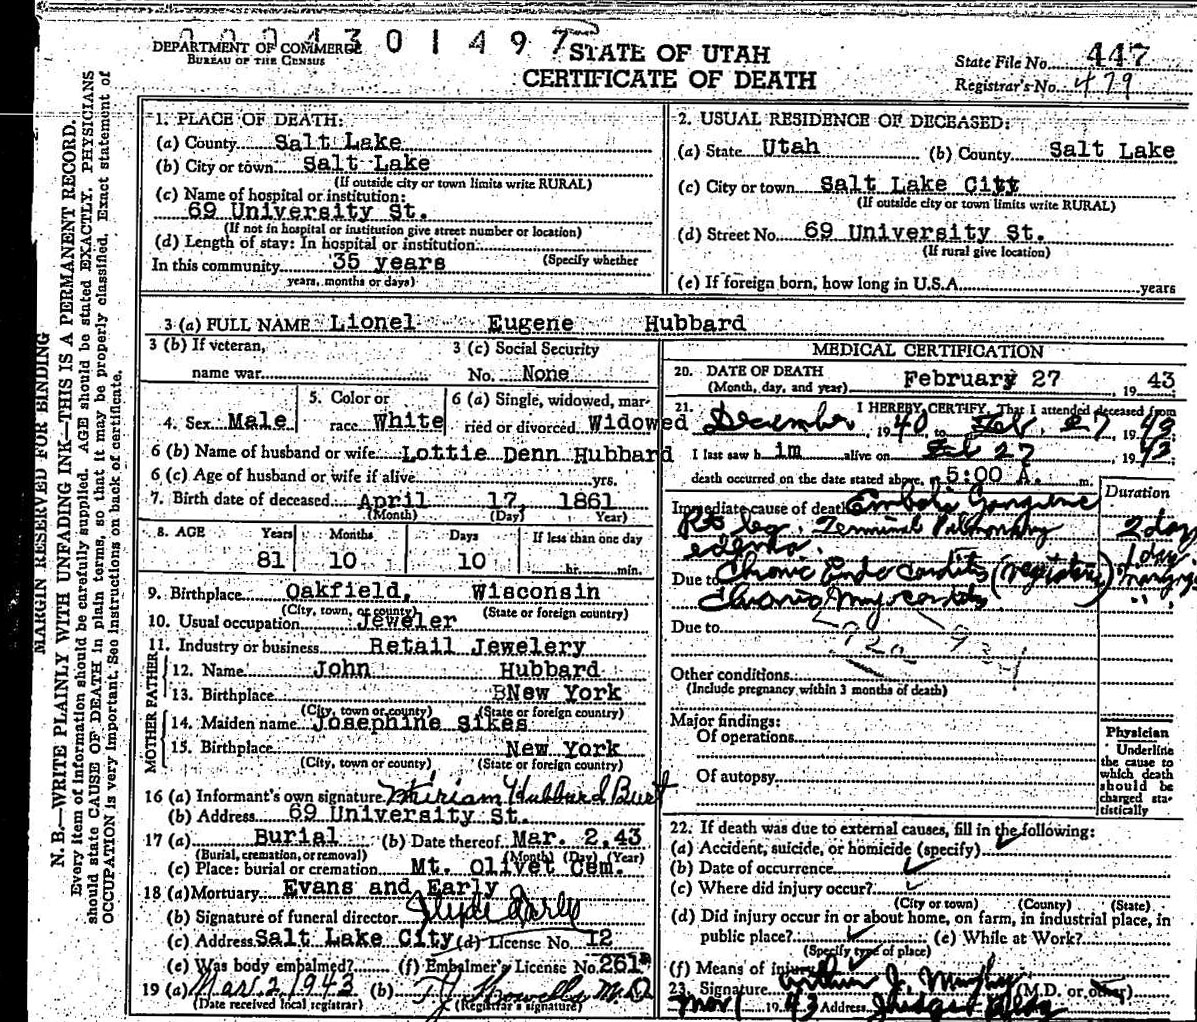 0004301497
DEPARTMENT OF COMMERCE
BUREAU OF THE CENSUS
STATE OF UTAH
CERTIFICATE OF DEATH
State File No. 447
Registrar's No. 479
MARGIN RESERVED FOR BINDING
N. B.—WRITE PLAINLY WITH UNFADING INK—THIS IS A PERMANENT RECORD.
Every item of information should be carefully supplied. AGE should be stated EXACTLY. PHYSICIANS
should state CAUSE OF DEATH in plain terms, so that it may be properly classified. Exact statement of
OCCUPATION is very important. See instructions on back of certificate.
1. PLACE OF DEATH:
(a) County Salt Lake
(b) City or town Salt Lake
(If outside city or town limits write RURAL)
(c) Name of hospital or institution:
69 University St.
(If not in hospital or institution give street number or location)
(d) Length of stay: In hospital or institution
In this community 35 years (Specify whether
years, months or days)
2. USUAL RESIDENCE OF DECEASED:
(a) State Utah (b) County Salt Lake
(c) City or town Salt Lake City
(If outside city or town limits write RURAL)
(d) Street No. 69 University St.
(If rural give location)
(e) If foreign born, how long in U.S.A. years
3 (a) FULL NAME Lionel Eugene Hubbard
3 (b) If veteran,
name war
3 (c) Social Security
No. None
4. Sex Male
5. Color or
race White
6 (a) Single, widowed, mar-
ried or divorced Widowed
6 (b) Name of husband or wife Lottie Denn Hubbard
6 (c) Age of husband or wife if alive yrs.
7. Birth date of deceased April 17, 1861
(Month) (Day) Year)
8. AGE Years Months Days If less than one day
81 10 10 hr. min.
9. Birthplace Oakfield, Wisconsin
(City, town, or county) (State or foreign country)
10. Usual occupation Jeweler
11. Industry or business Retail Jewelery
FATHER
12. Name John Hubbard
13. Birthplace BNew York
(City, town or county) (State or foreign country)
MOTHER
14. Maiden name Josephine Sikes
15. Birthplace New York
(City, town or county) (State or foreign country)
16 (a) Informant's own signature Miriam Hubbard Burt
(b) Address 69 University St.
17 (a) Burial (b) Date thereof Mar. 2,43
(Burial, cremation, or removal) (Month) (Day) (Year)
(c) Place: burial or cremation Mt. Olivet Cem.
18 (a) Mortuary Evans and Early
(b) Signature of funeral director Clyde Early
(c) Address Salt Lake City (d) License No. 12
(e) Was body embalmed? (f) Embalmer's License No. 261
19 (a) Mar 2, 1943 (b) M.D.
(Date received local registrar) (Registrar's signature)
MEDICAL CERTIFICATION
20. DATE OF DEATH
(Month, day, and year) February 27, 1943
21. I HEREBY CERTIFY, That I attended deceased from
December, 1940 to Feb, 27 1943
I last saw h im alive on Feb 27 1943
death occurred on the date stated above, a 5:00 A. m.
Duration
Immediate cause of death Embolic Gangrene
Rt leg. Terminal Pulmonary 2 days
edema. 1 day
Due to Chronic Endocarditis (vegetative) many yrs
Chronic Myocarditis " "
Due to
92a 93d
Other conditions
(Include pregnancy within 3 months of death)
Major findings:
Of operations
Of autopsy
Physician
Underline
the cause to
which death
should be
charged sta-
tistically
22. If death was due to external causes, fill in the following:
(a) Accident, suicide, or homicide (specify) ✓
(b) Date of occurrence ✓
(c) Where did injury occur? ✓
(City or town) (County) (State)
(d) Did injury occur in or about home, on farm, in industrial place, in
public place? ✓ (e) While at Work?
(Specify type of place)
(f) Means of injury ✓
23. Signature Arthur J. Murphy (M.D. or other)
Mar 1 1943 Address Judge Bldg